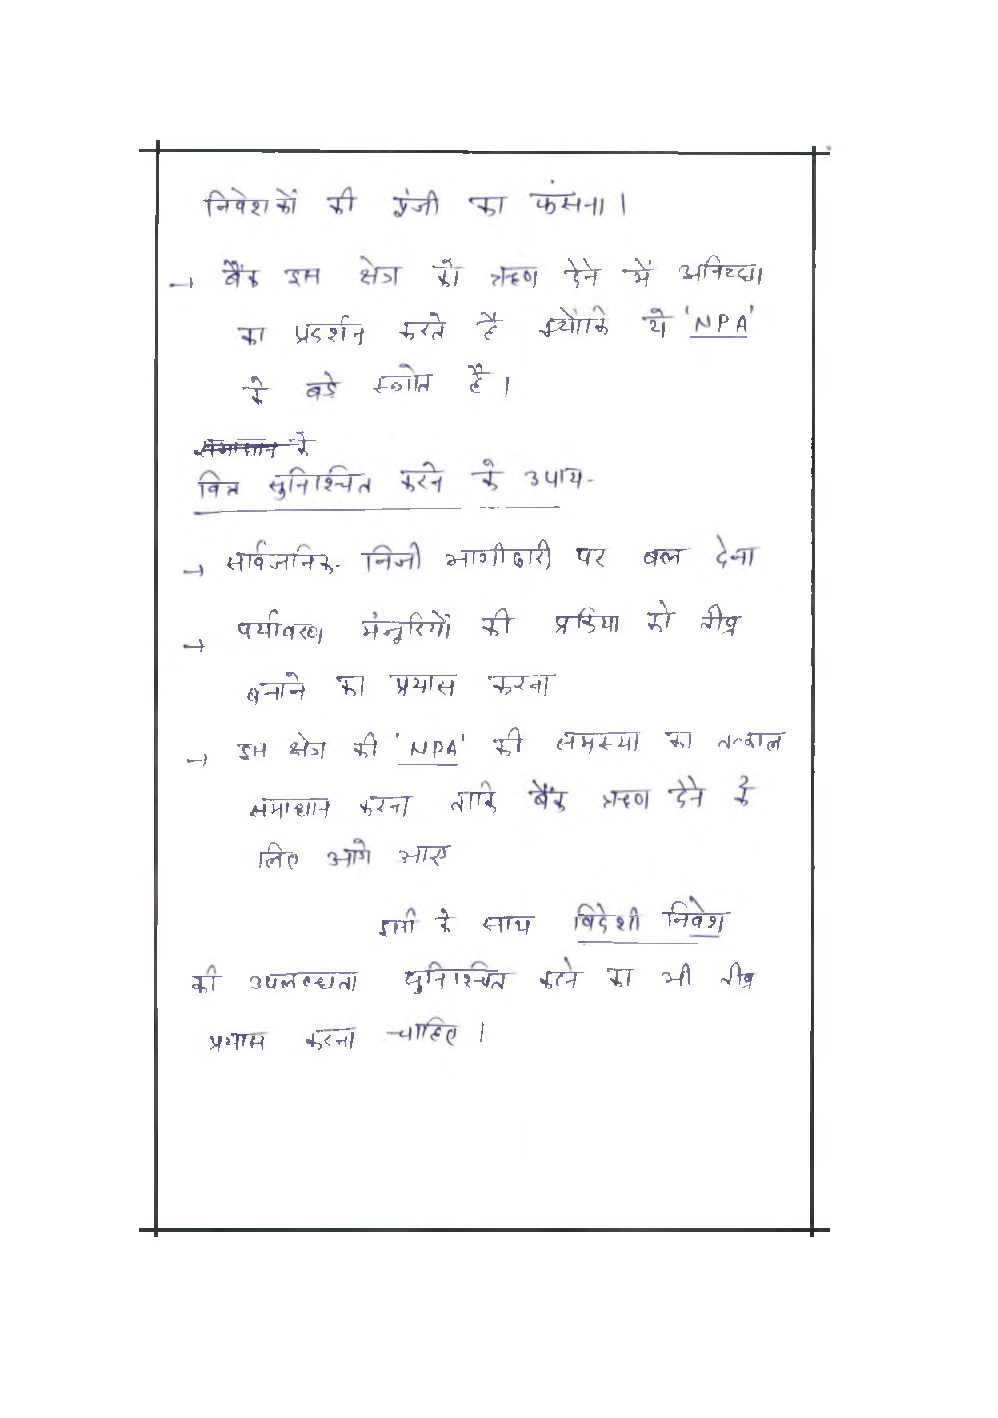 निवेशकों की पूंजी का फंसना।
→ बैंक इस क्षेत्र को ऋण देने में अनिच्छा
का प्रदर्शन करते हैं क्योंकि ये 'NPA'
के बड़े स्त्रोत हैं।
समाधान के
वित्त सुनिश्चित करने के उपाय-
→ सार्वजनिक- निजी भागीदारी पर बल देना
→ पर्यावरण मंजूरियों की प्रक्रिया को तीव्र
बनाने का प्रयास करना
→ इस क्षेत्र की 'NPA' की समस्या का तत्काल
समाधान करना ताकि बैंक ऋण देने के
लिए आगे आए
इसी के साथ विदेशी निवेश
की उपलब्धता सुनिश्चित करने का भी तीव्र
प्रयास करना चाहिए।